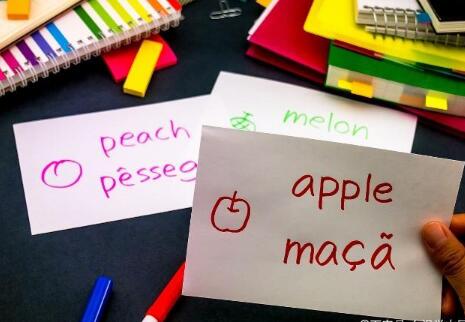 peach
pêsseg
melon
apple
maçã